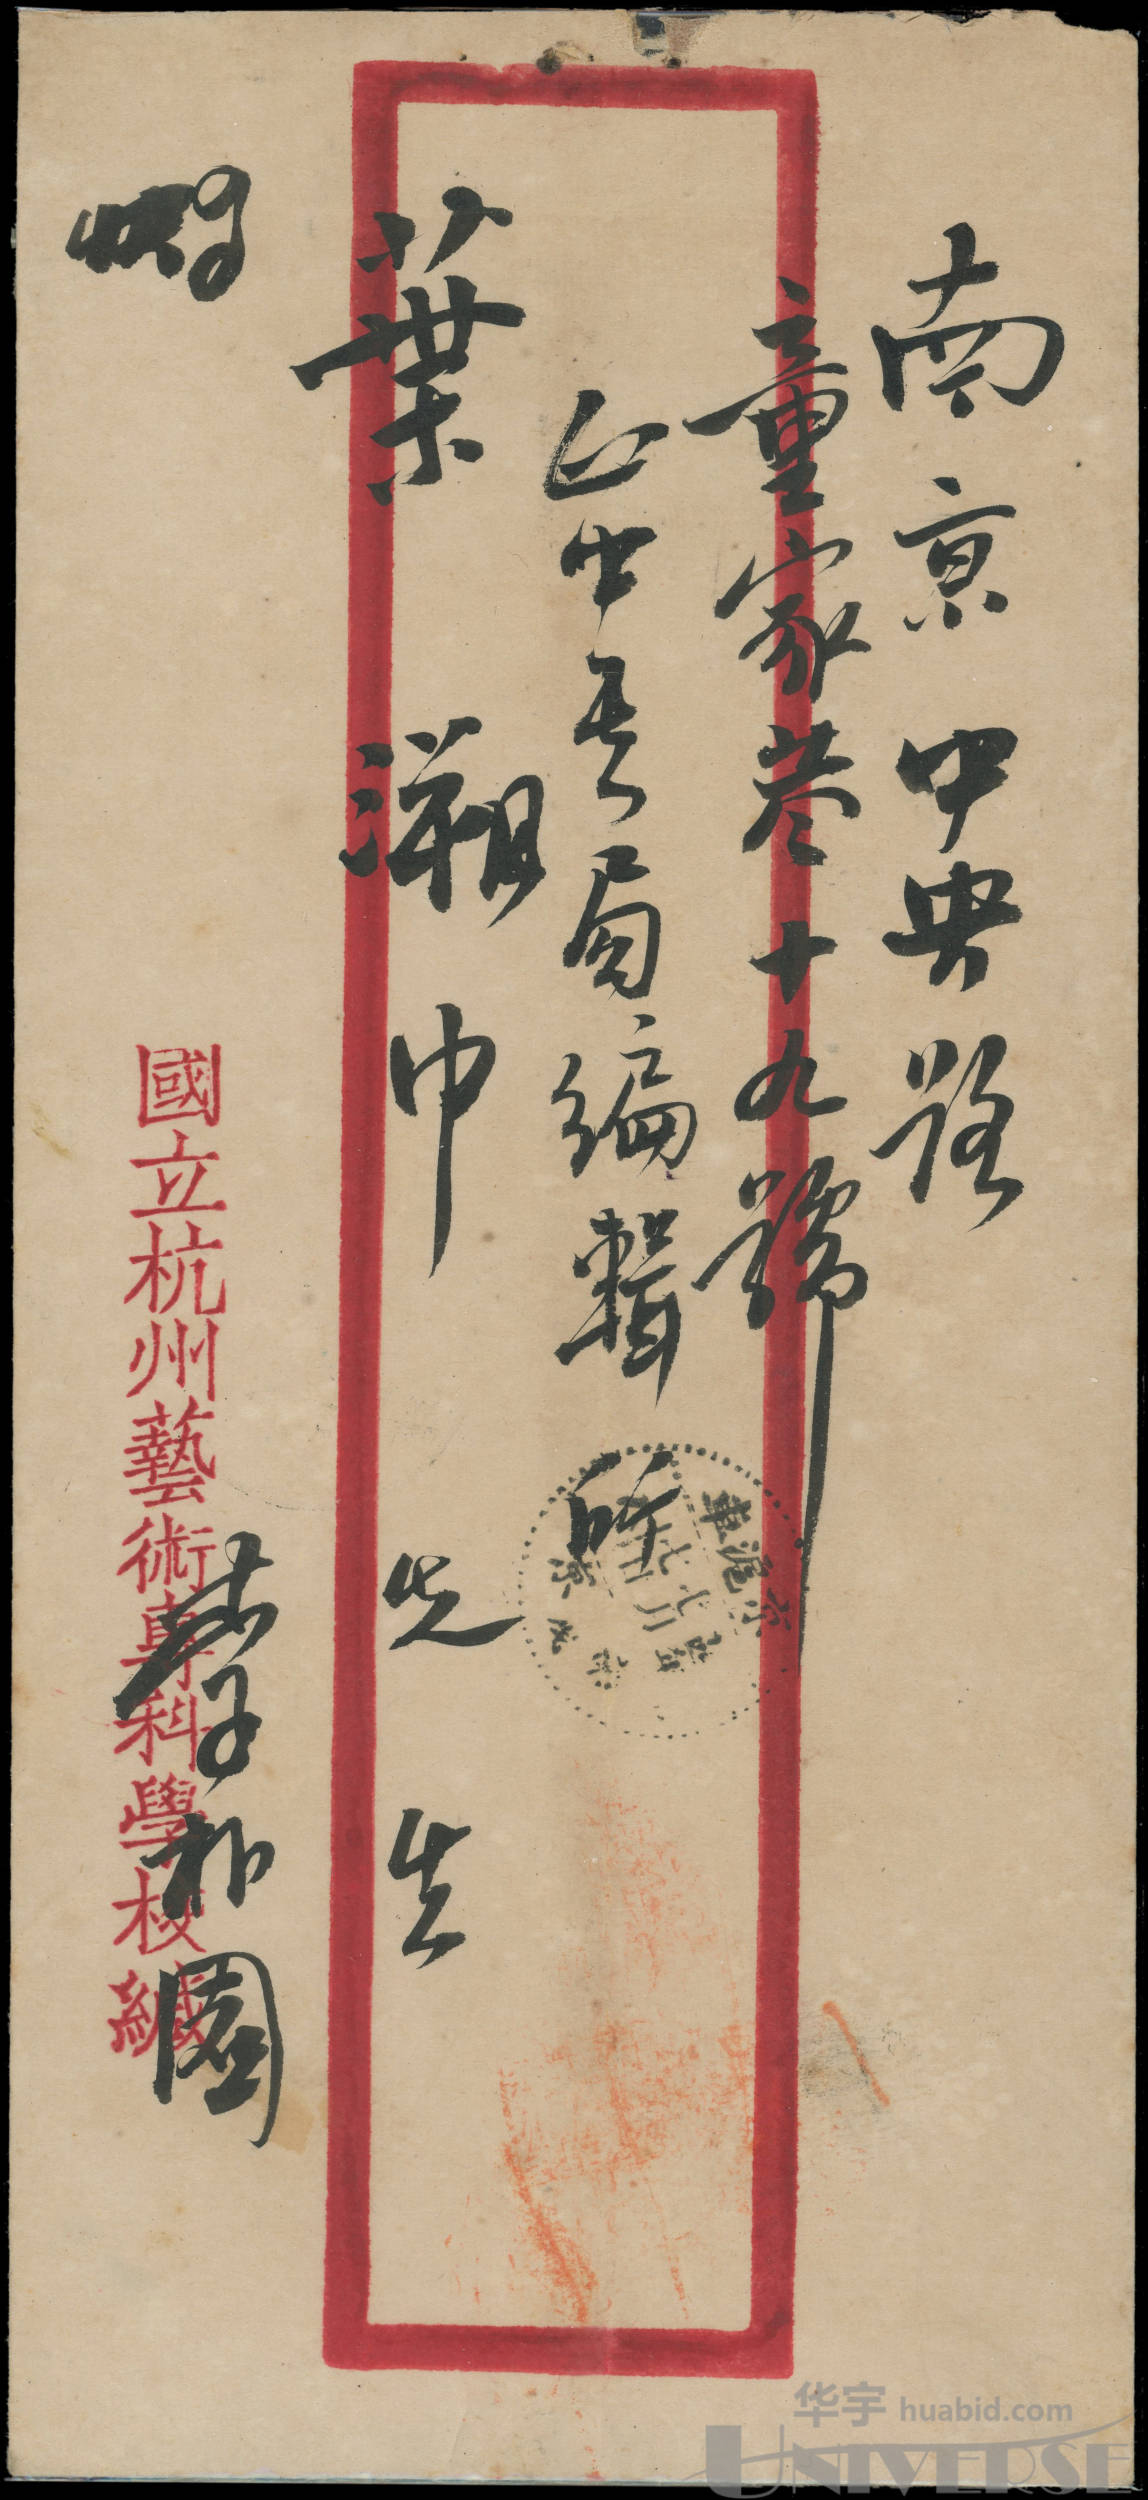 南京中央路
童家巷十九號
正中書局編輯所
葉溯中 先生
國立杭州藝術專科學校緘
李朴園
华宇 huabid.com
UNIVERSE